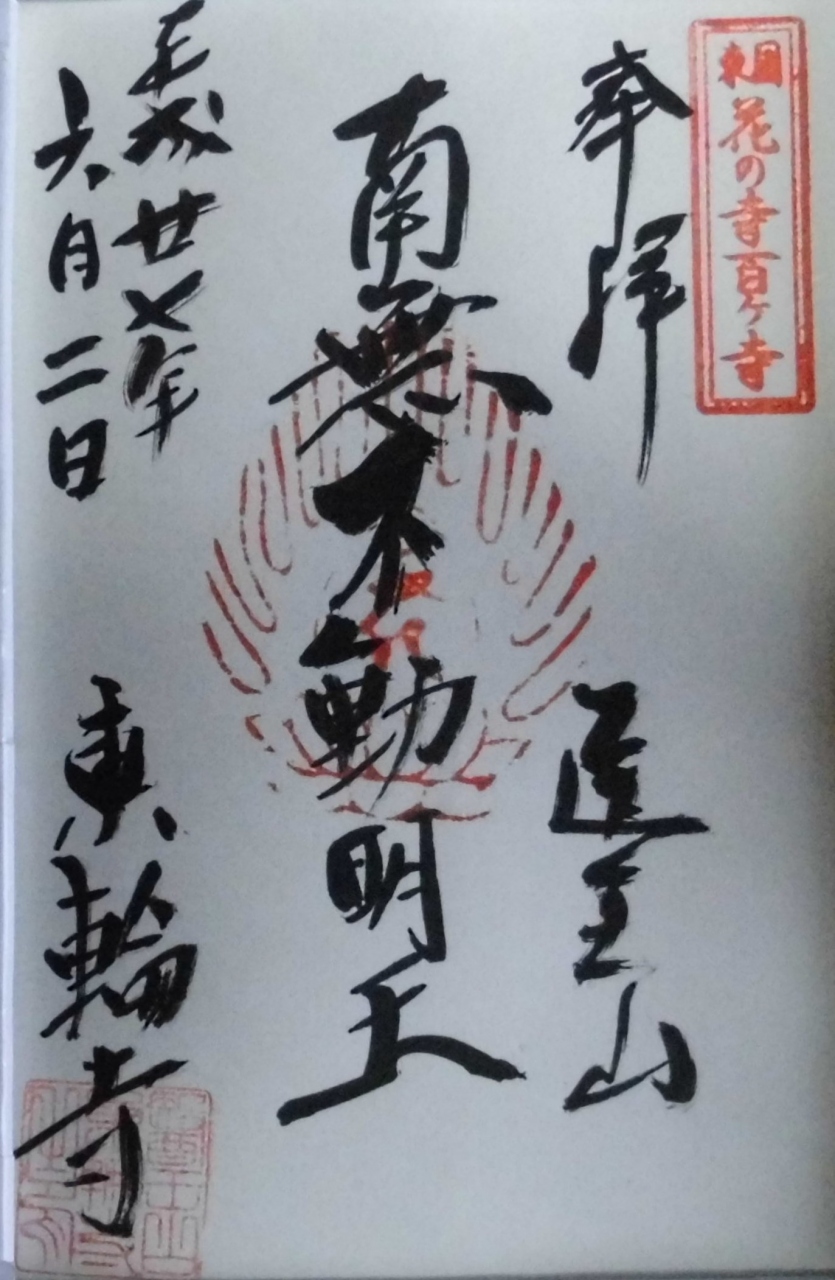 東国花の寺百ヶ寺
奉拝
医王山
南無不動明王
平成廿七年
六月二日
東輪寺